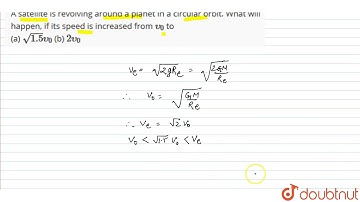 A satellite is revolving around a planet in a circular orbit. What will
happen, if its speed is increased from v₀ to
(a) √1.5v₀ (b) 2v₀
Ve = √2gRe = √2GM/Re
∴ V₀ = √GM/Re
∴ Ve = √2 V₀
V₀ < √1.5 V₀ < Ve
doubtnut